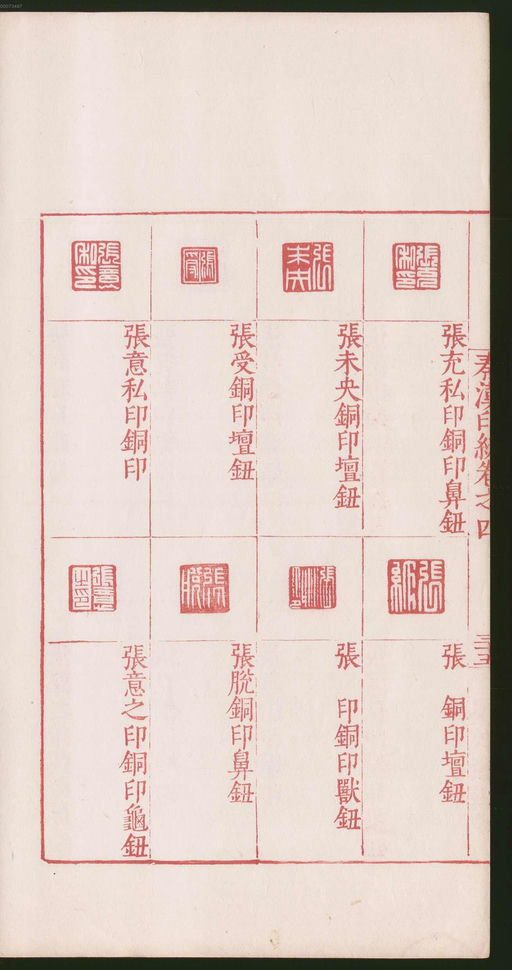 00073487
秦漢印統卷之四
三十五
張充私印銅印鼻鈕
張未央銅印壇鈕
張受銅印壇鈕
張意私印銅印
張 銅印壇鈕
張 印銅印獸鈕
張脫銅印鼻鈕
張意之印銅印龜鈕